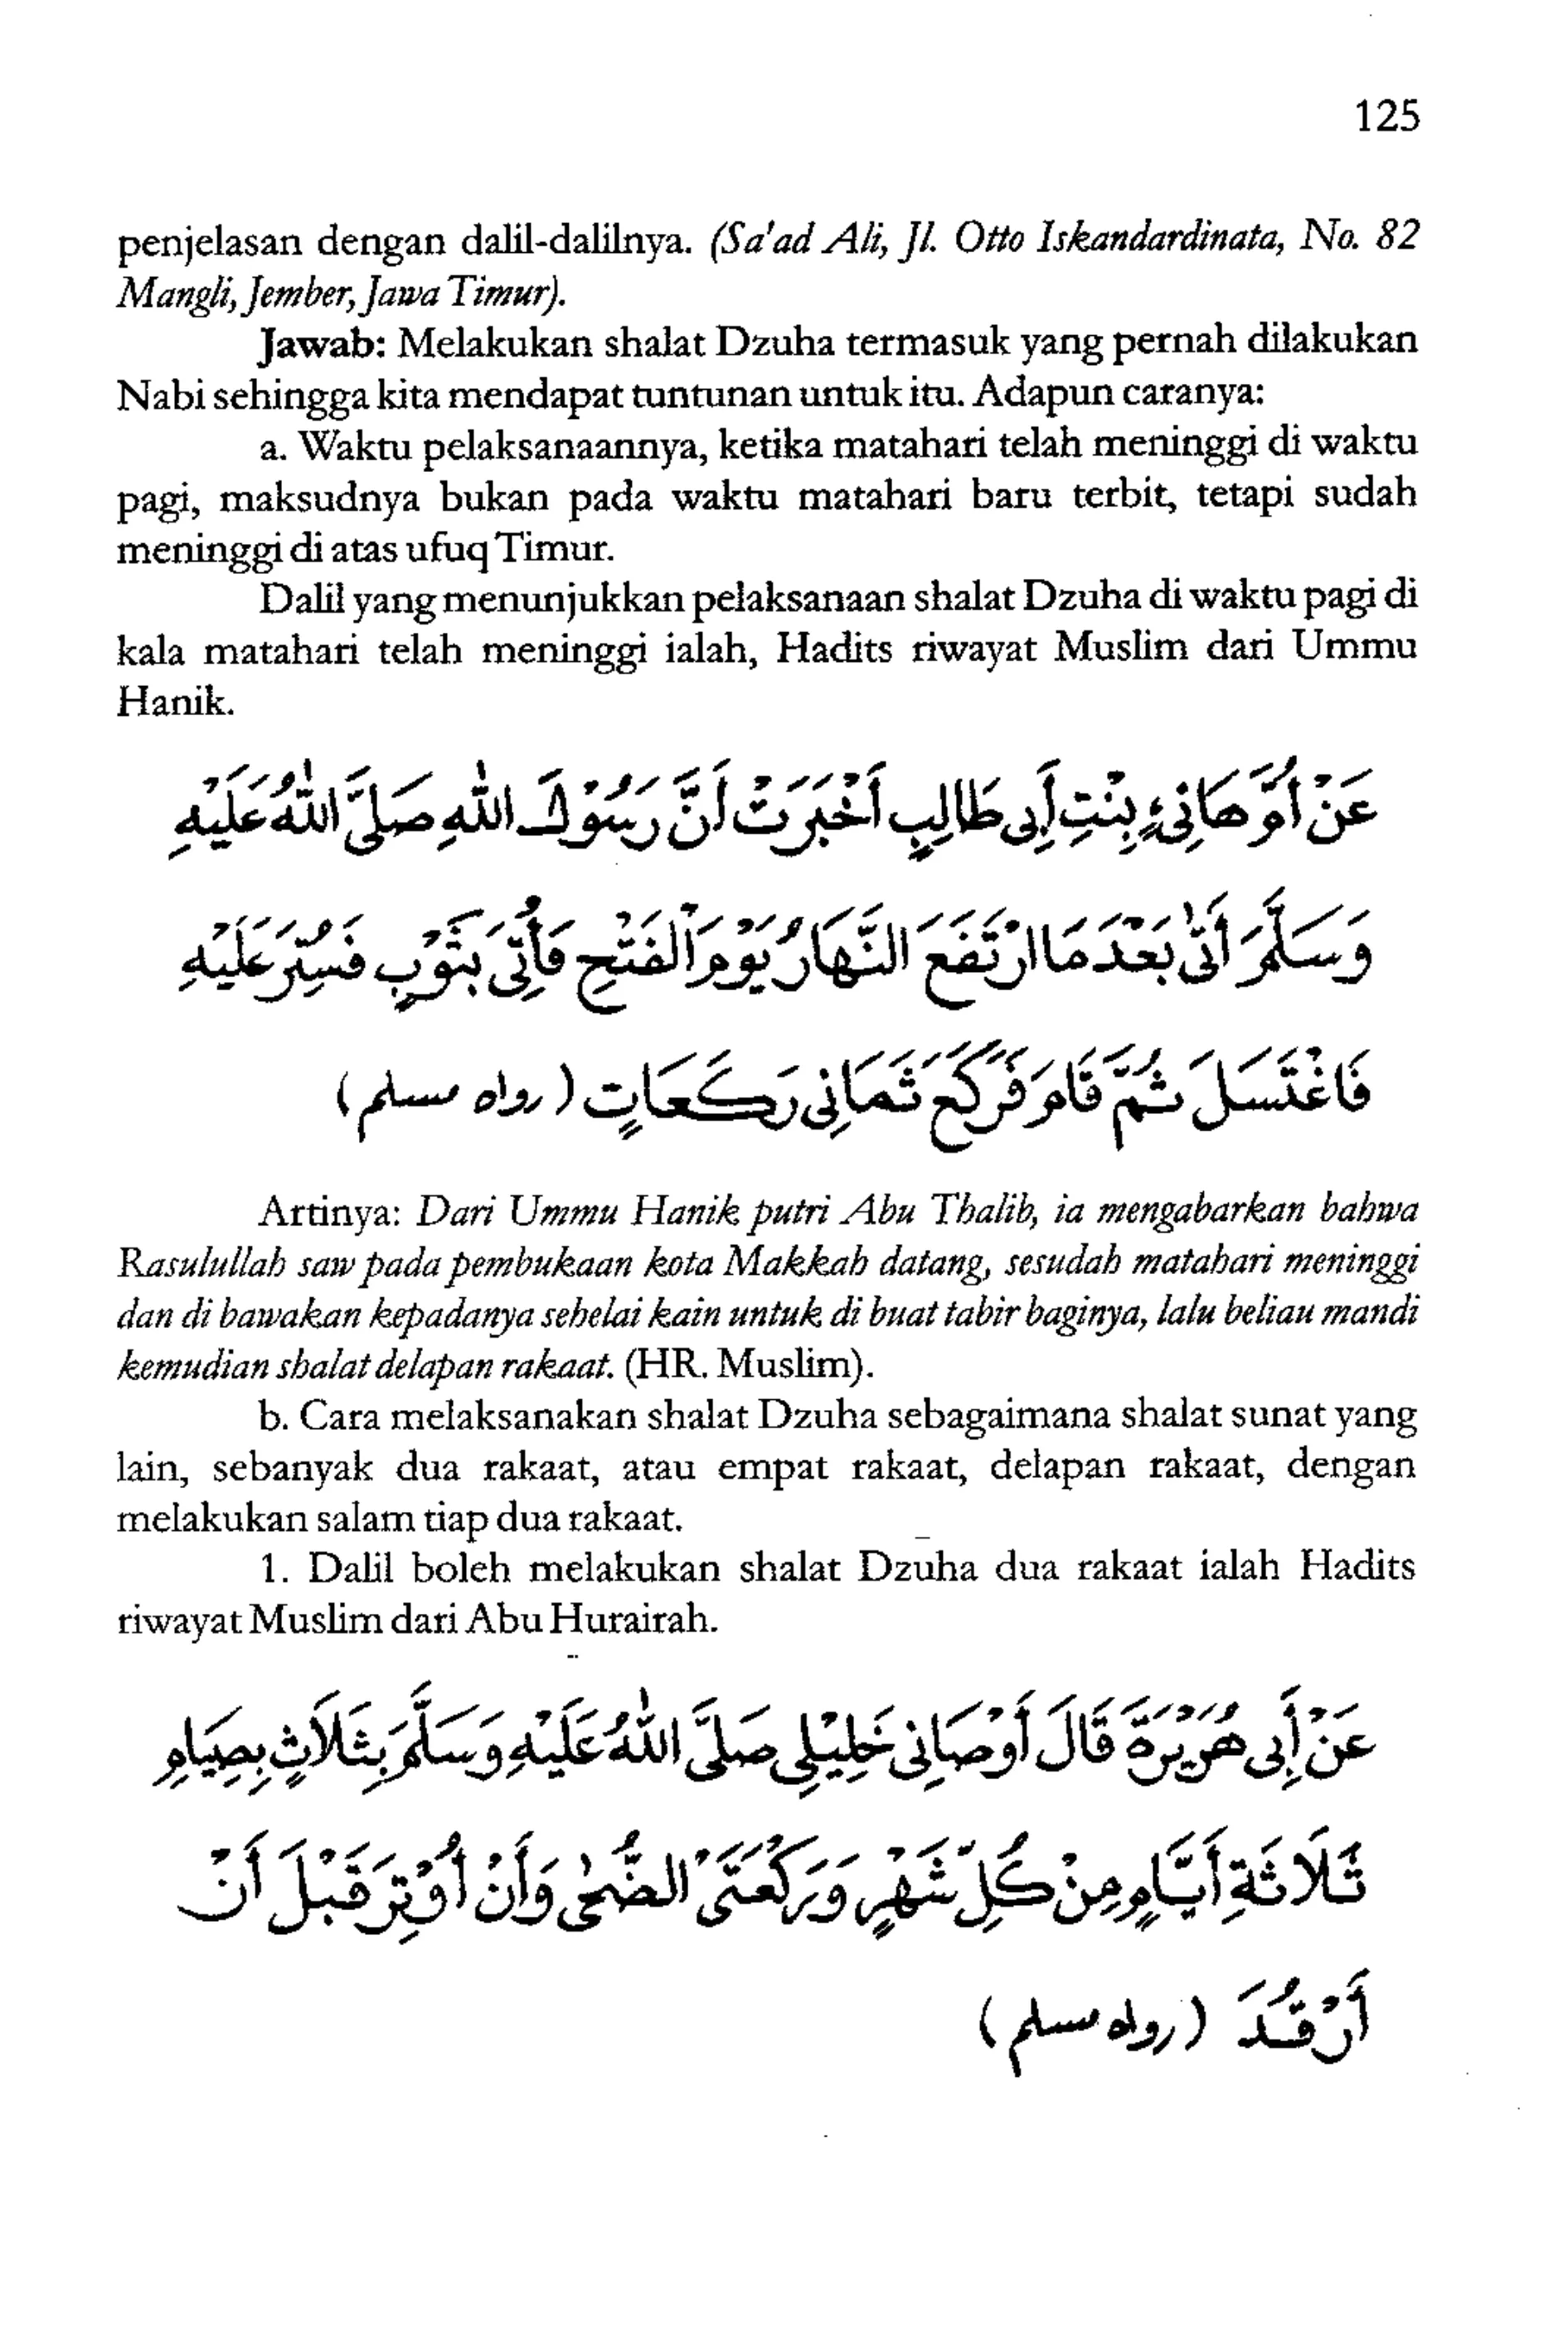 125
penjelasan dengan dalil-dalilnya. (Sa'ad Ali, Jl. Otto Iskandardinata, No. 82
Mangli, Jember, Jawa Timur).
Jawab: Melakukan shalat Dzuha termasuk yang pernah dilakukan
Nabi sehingga kita mendapat tuntunan untuk itu. Adapun caranya:
a. Waktu pelaksanaannya, ketika matahari telah meninggi di waktu
pagi, maksudnya bukan pada waktu matahari baru terbit, tetapi sudah
meninggi di atas ufuq Timur.
Dalil yang menunjukkan pelaksanaan shalat Dzuha di waktu pagi di
kala matahari telah meninggi ialah, Hadits riwayat Muslim dari Ummu
Hanik.
عَنْ أُمِّ هَانِئٍ بِنْتِ أَبِى طَالِبٍ أَخْبَرَتْ أَنَّ رَسُوْلَ اللهِ صَلَّى اللهُ عَلَيْهِ
وَسَلَّمَ أَتَى بَعْدَ مَا ارْتَفَعَ النَّهَارُ يَوْمَ الْفَتْحِ فَأُتِيَ بِثَوْبٍ فَسُتِرَ عَلَيْهِ
فَاغْتَسَلَ ثُمَّ قَامَ فَرَكَعَ ثَمَانِىَ رَكَعَاتٍ (رواه مسلم)
Artinya: Dari Ummu Hanik putri Abu Thalib, ia mengabarkan bahwa
Rasulullah saw pada pembukaan kota Makkah datang, sesudah matahari meninggi
dan di bawakan kepadanya sehelai kain untuk di buat tabir baginya, lalu beliau mandi
kemudian shalat delapan rakaat. (HR. Muslim).
b. Cara melaksanakan shalat Dzuha sebagaimana shalat sunat yang
lain, sebanyak dua rakaat, atau empat rakaat, delapan rakaat, dengan
melakukan salam tiap dua rakaat.
1. Dalil boleh melakukan shalat Dzuha dua rakaat ialah Hadits
riwayat Muslim dari Abu Hurairah.
عَنْ أَبِى هُرَيْرَةَ قَالَ أَوْصَانِى خَلِيْلِى صَلَّى اللهُ عَلَيْهِ وَسَلَّمَ بِثَلَاثٍ بِصِيَامِ
ثَلَاثَةِ أَيَّامٍ مِنْ كُلِّ شَهْرٍ وَرَكْعَتَىِ الضُّحَى وَأَنْ أُوْتِرَ قَبْلَ أَنْ
أَرْقُدَ (رواه مسلم)